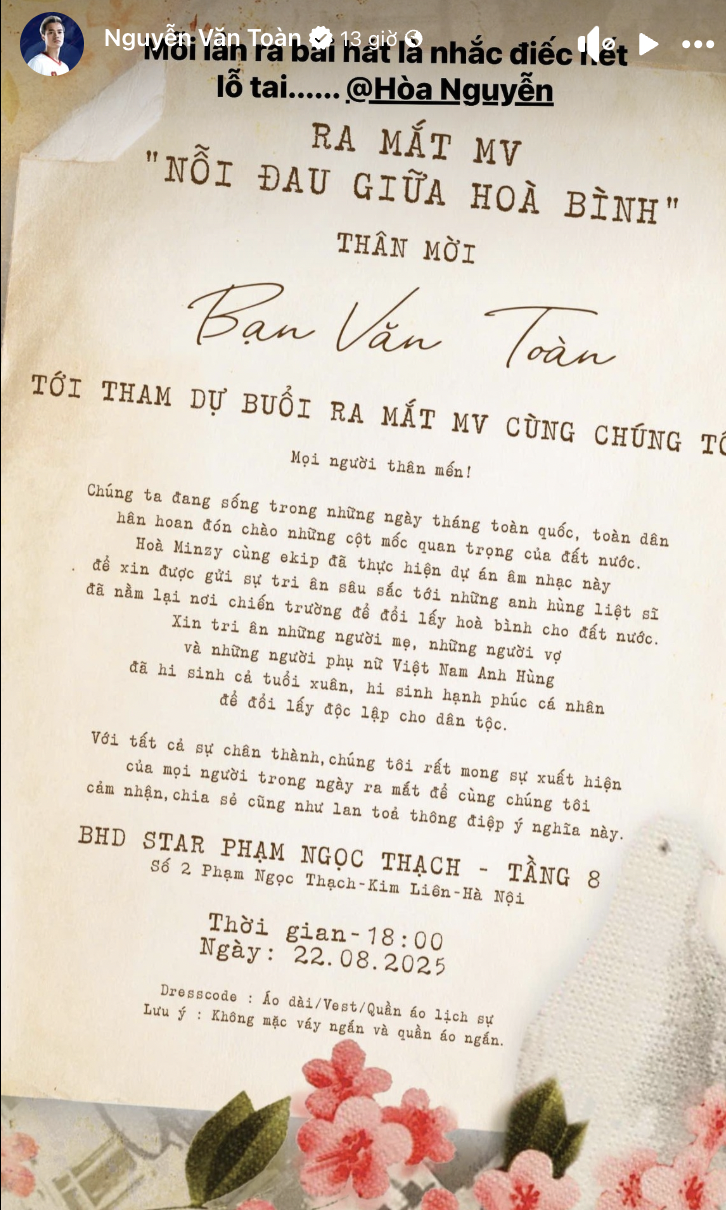 Nguyễn Văn Toàn 13 giờ
Mỗi lần ra bài hát là nhắc điếc hết
lỗ tai...... @Hòa Nguyễn
RA MẮT MV
"NỖI ĐAU GIỮA HOÀ BÌNH"
THÂN MỜI
Bạn Văn Toàn
TỚI THAM DỰ BUỔI RA MẮT MV CÙNG CHÚNG TÔ
Mọi người thân mến!
Chúng ta đang sống trong những ngày tháng toàn quốc, toàn dân
hân hoan đón chào những cột mốc quan trọng của đất nước.
Hoà Minzy cùng ekip đã thực hiện dự án âm nhạc này
để xin được gửi sự tri ân sâu sắc tới những anh hùng liệt sĩ
đã nằm lại nơi chiến trường để đổi lấy hoà bình cho đất nước.
Xin tri ân những người mẹ, những người vợ
và những người phụ nữ Việt Nam Anh Hùng
đã hi sinh cả tuổi xuân, hi sinh hạnh phúc cá nhân
để đổi lấy độc lập cho dân tộc.
Với tất cả sự chân thành, chúng tôi rất mong sự xuất hiện
của mọi người trong ngày ra mắt để cùng chúng tôi
cảm nhận, chia sẻ cũng như lan toả thông điệp ý nghĩa này.
BHD STAR PHẠM NGỌC THẠCH - TẦNG 8
Số 2 Phạm Ngọc Thạch-Kim Liên-Hà Nội
Thời gian-18:00
Ngày: 22.08.2025
Dresscode : Áo dài/Vest/Quần áo lịch sự
Lưu ý : Không mặc váy ngắn và quần áo ngắn.